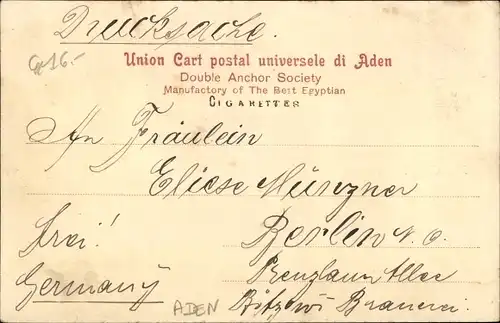 Drucksache.
Ge 16.-
Union Cart postal universele di Aden
Double Anchor Society
Manufactory of The Bert Egyptian
CIGARETTES
An Fräulein
Eliese Münzner
Berlin N.O.
Frei!
Prenzlauer Allee
Germany
Bötzow Brauerei.
ADEN